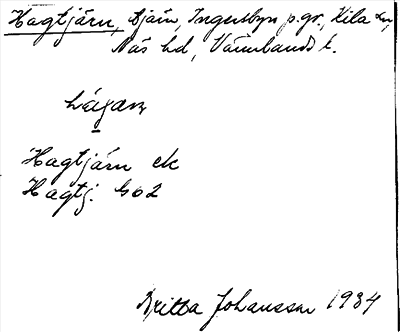 Hagtjärn, Sjön, Ingersbyn p.gr., Kila sn,
Näs hd, Värmlands l.
Lägen
Hagtjärn ek
Hagtj. G02
Britta Johansson 1934